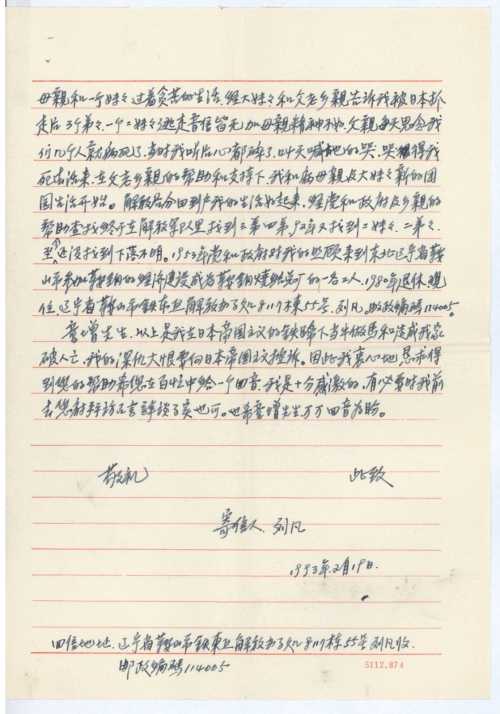 母親和一个妹々过着贫苦的生活、經大妹々和父老乡親告诉我被日本抓
走后3个弟々、一个二妹々逃走音信皆无加母親精神不好、父親每天思念我
们几个人就病死了、当时我听后心都碎了、叫天喊地的哭、哭得我
死去活来、在父老乡親的帮助和支持下、我和病母親及大妹々新的团
园生活开始。解放后今回到户我的生活好起来、經党和政府及乡親的
帮助查找終于在解放軍队里找到三弟四弟、92年又找到二妹々、二弟々、
至今还没找到下落不明。1953年党和政府对我的照顾来到东北辽宁省鞍
山市参加鞍钢的經济建设成为鞍钢燒結总厂的一名工人、1980年退休、现
住辽宁省鞍山市鉄东区解放办了欠八8117栋55号、刘凡、邮政编码114005。
董增先生、以上是我在日本帝国主议的鉄蹄下当牛做馬和造成我家
破人亡、我的深仇大恨要向日本帝国主议控诉。因此我衷心地恳求得
到您的帮助希您在百忙中给一个回音、我是十分感激的、有必要时我前
去您府拜访
不言詳談了矣也可。也希童增先生万万回音为盼。
敬礼 此致
寄信人、刘凡
1993年2月19日.
回信地址、辽宁省鞍山市鉄東区解放办了欠八8117栋55号刘凡收、
邮政编码114005
5112.874